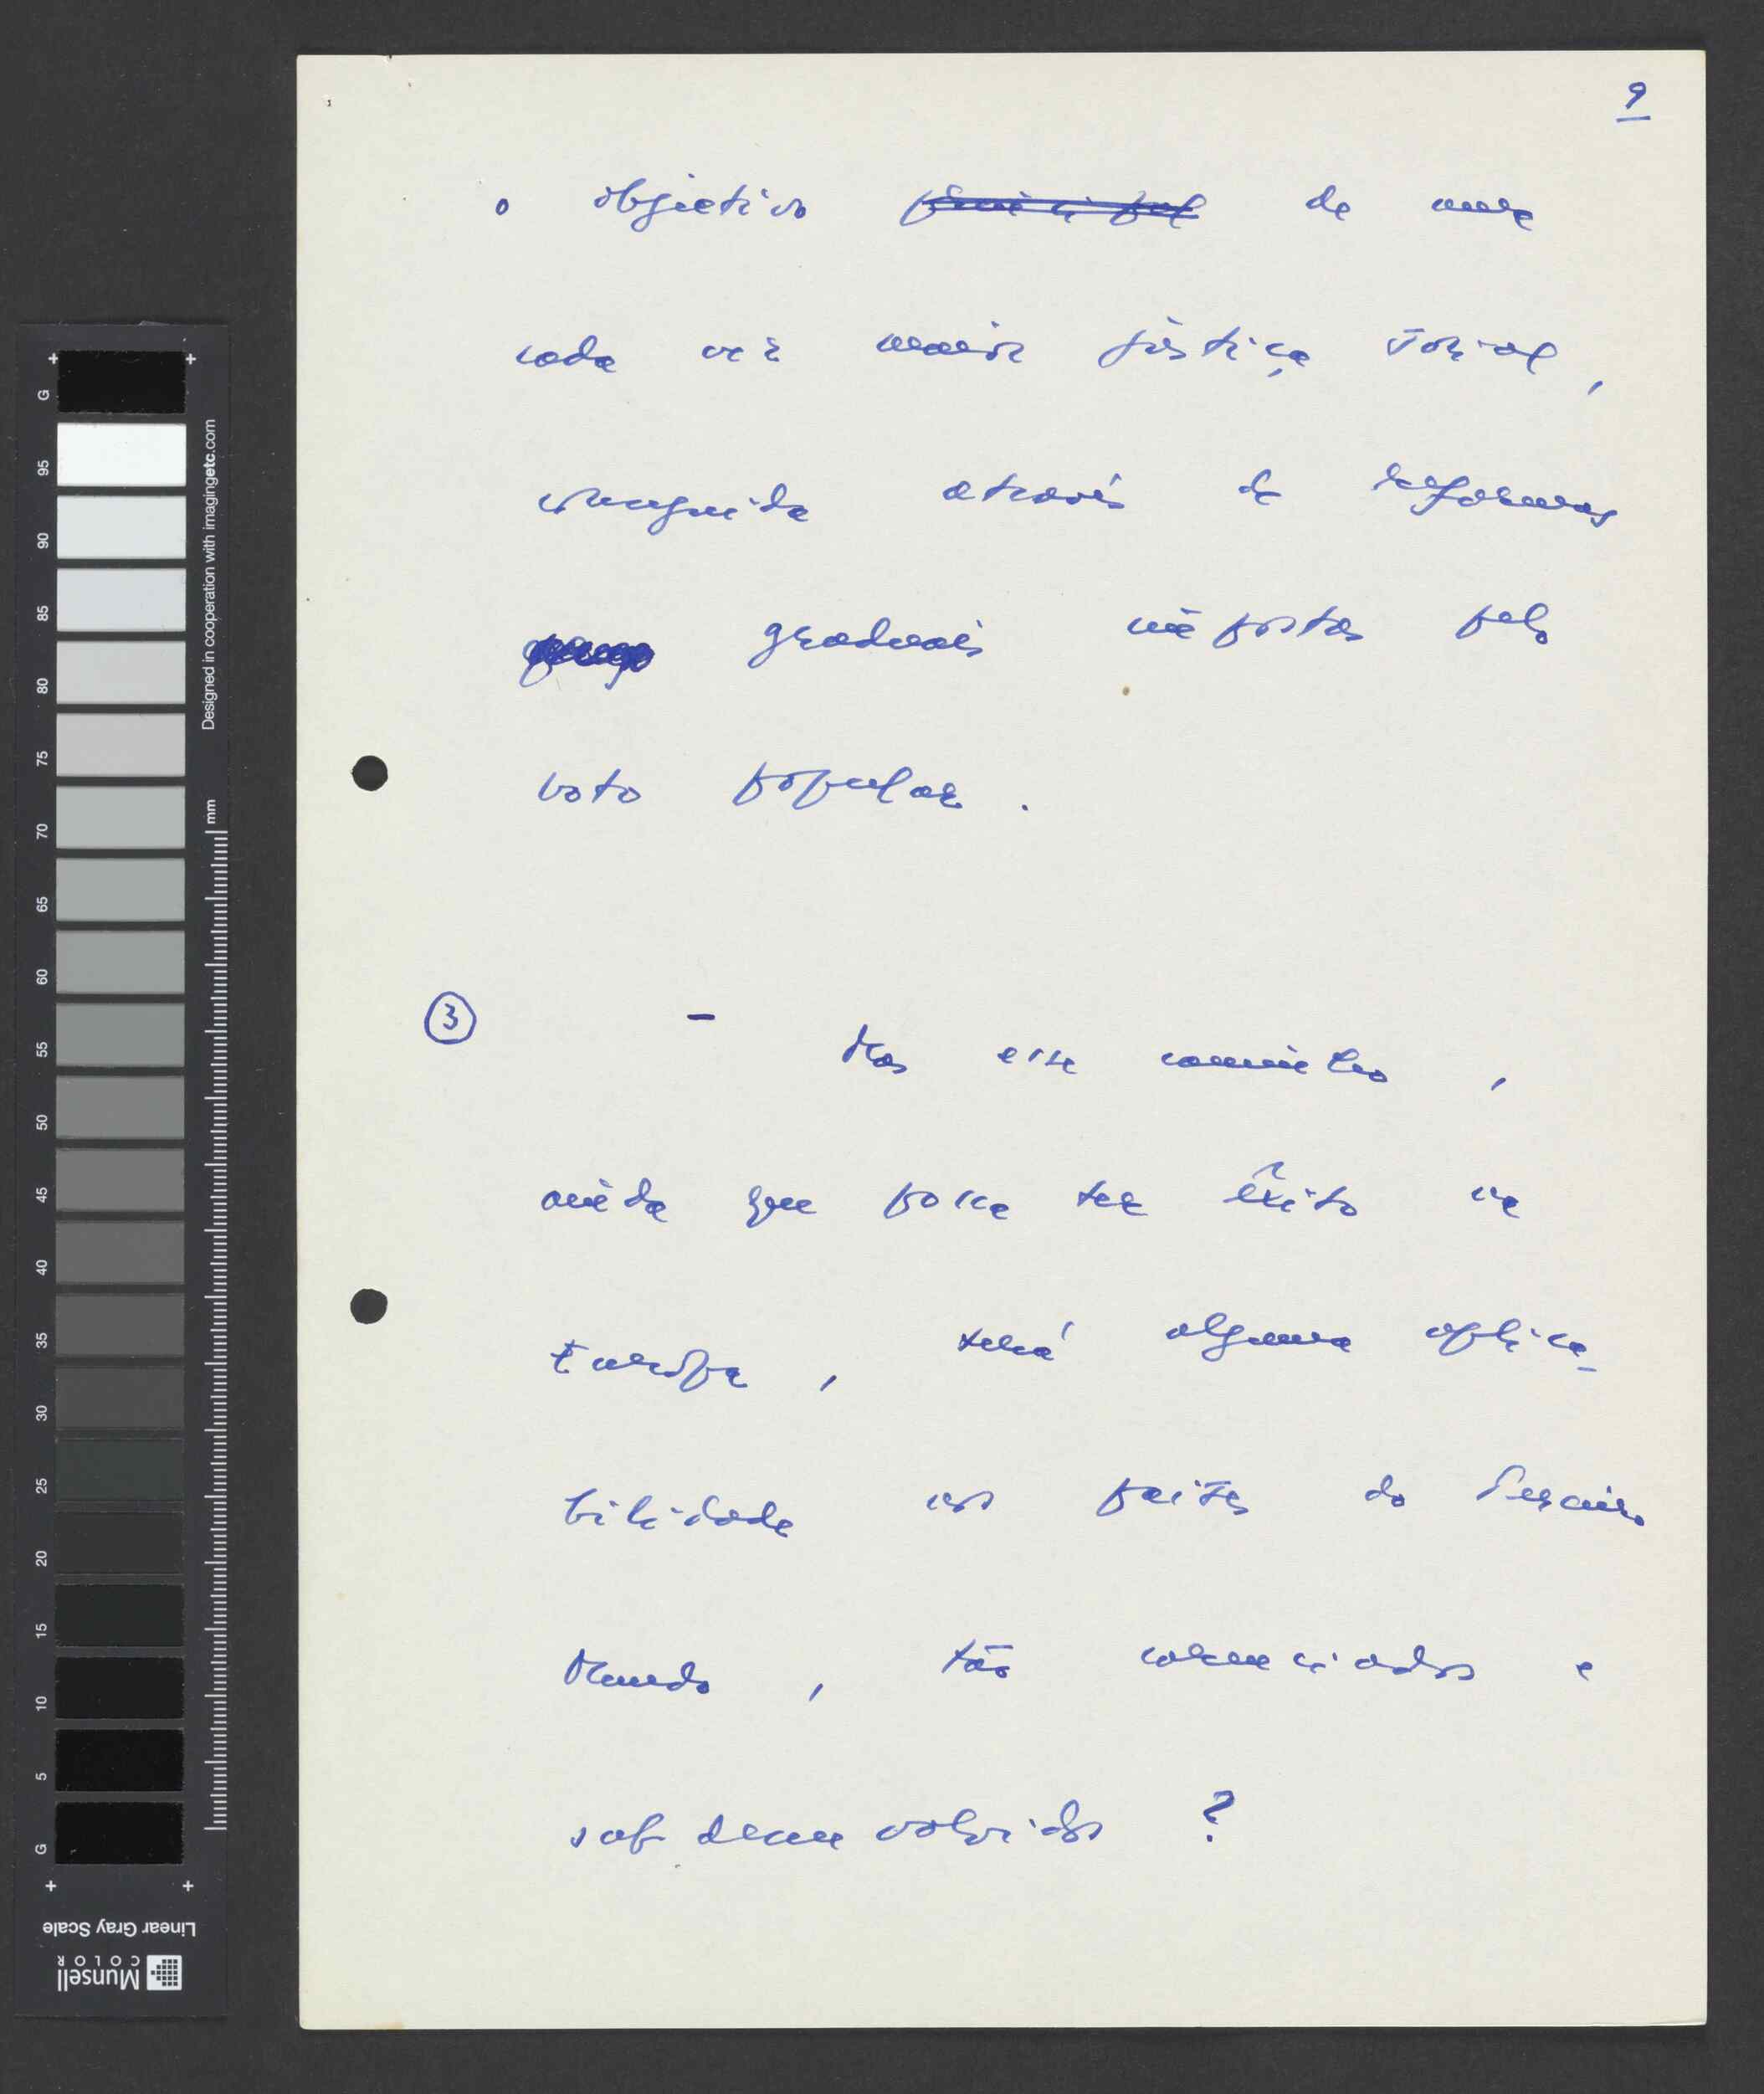 9
o objectivo principal de uma
cada vez maior justiça social,
conseguida através de reformas
graduais impostas pelo
voto popular.
③ - Mas esse caminho,
ainda que possa ter êxito na
Europa, terá alguma aplica_
bilidade nos países do Terceiro
Mundo, tão carenciados e
sub desenvolvidos ?
G
95
90
85
80
75
70
65
60
55
50
45
40
35
30
25
20
15
10
5
G
Designed in cooperation with imagingetc.com
mm
Linear Gray Scale
Munsell
COLOR